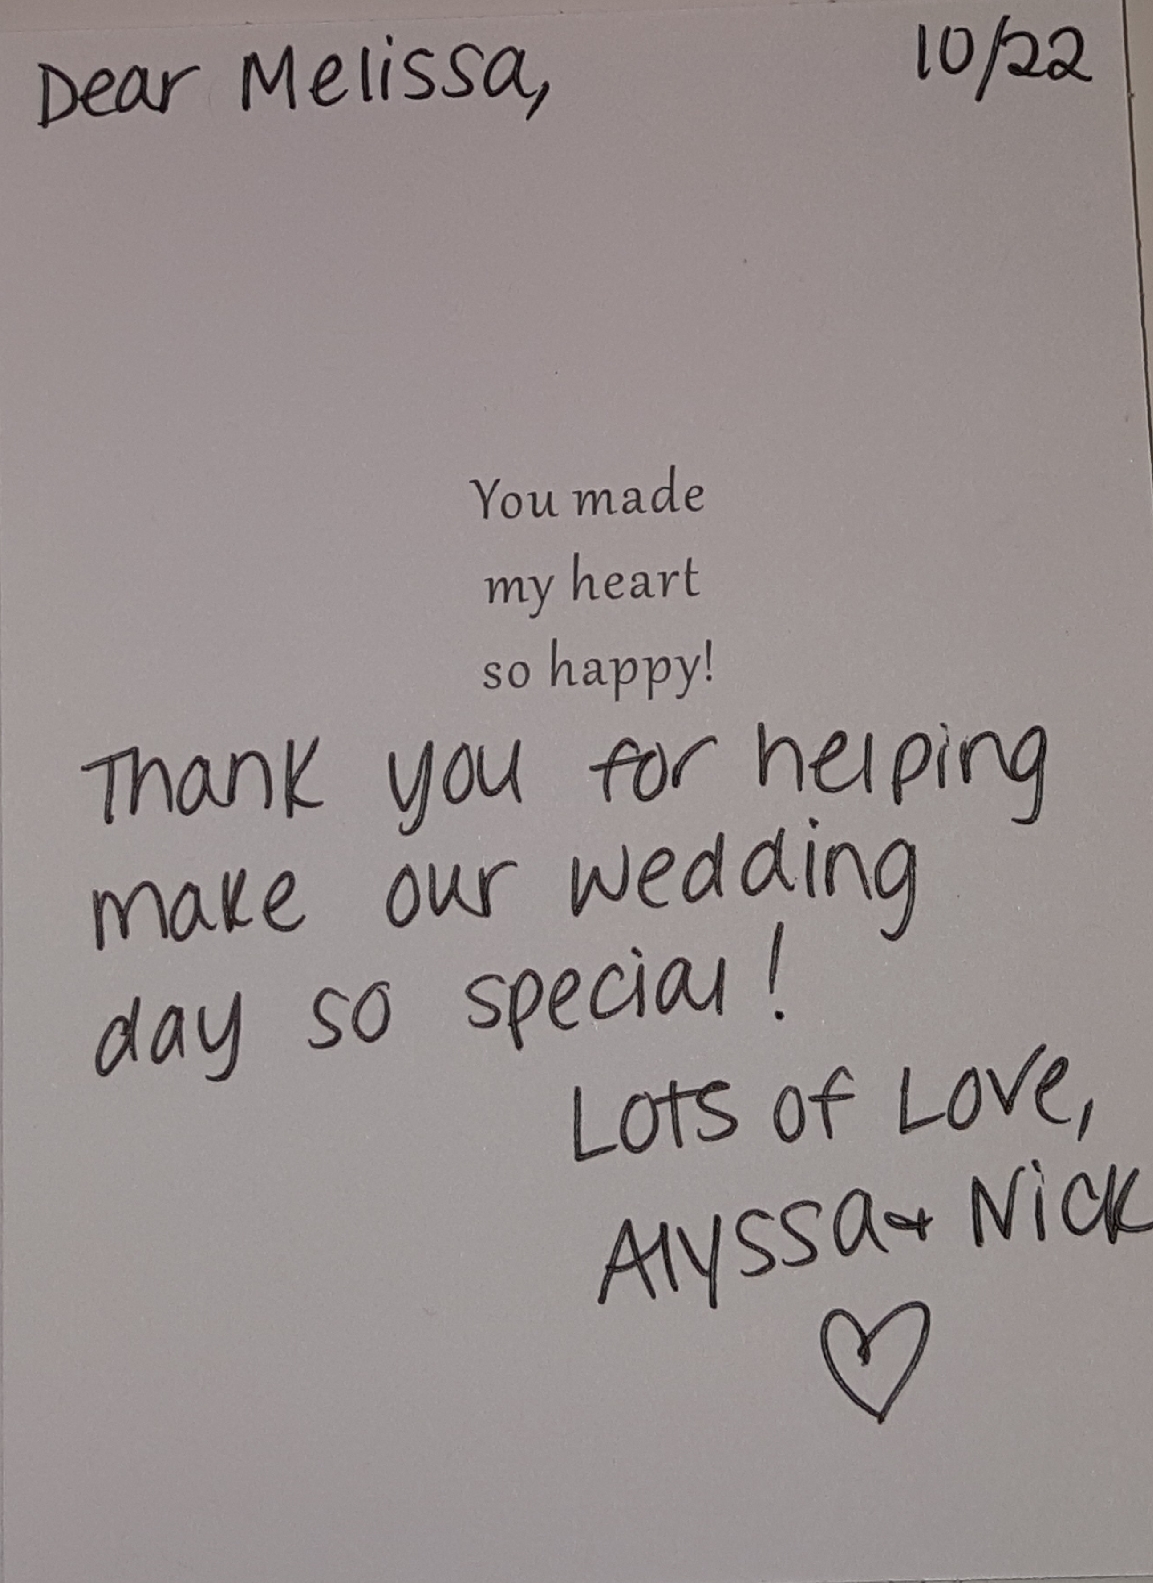 Dear Melissa, 10/22
You made
my heart
so happy!
Thank you for helping
make our wedding
day so special!
Lots of Love,
Alyssa + Nick